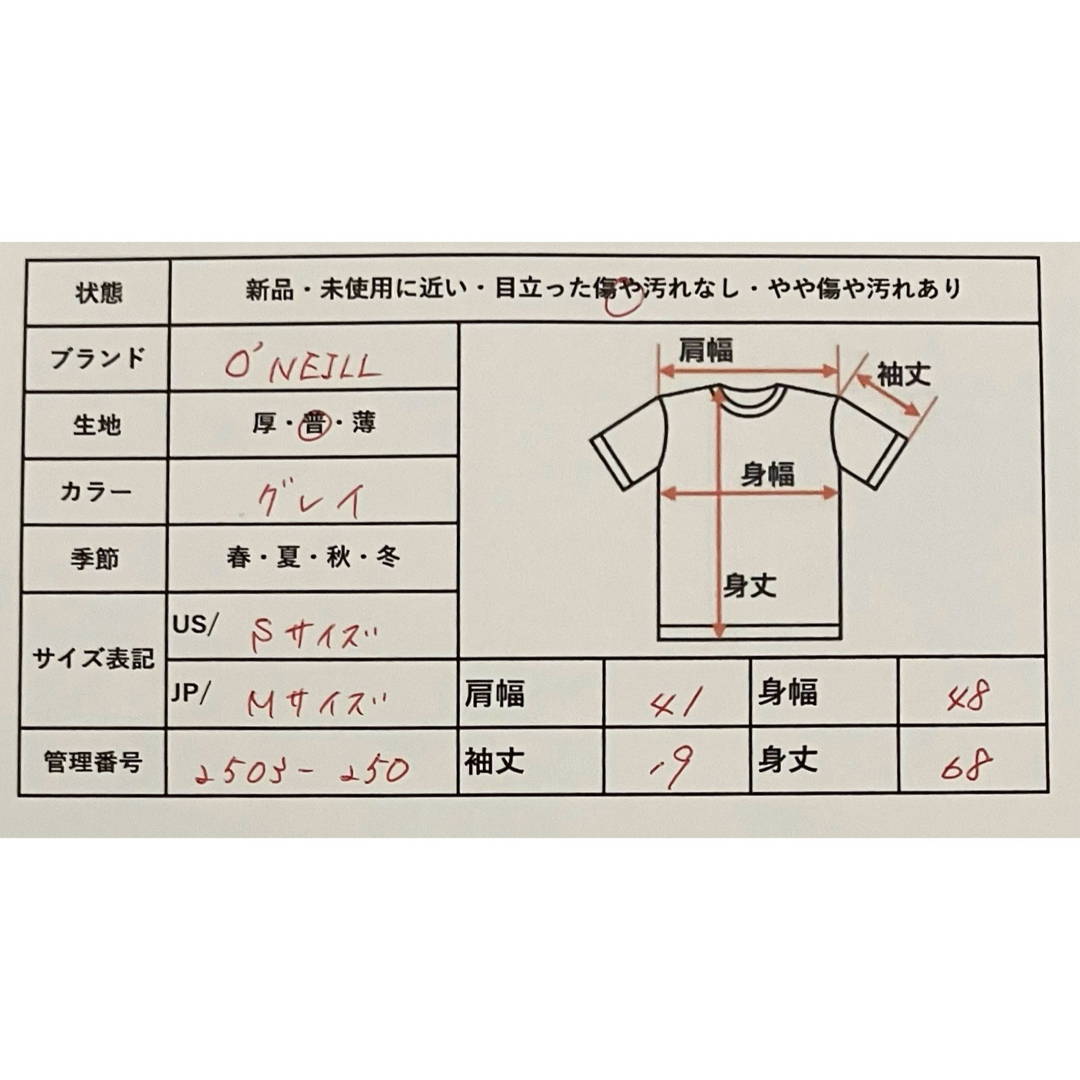 状態 新品・未使用に近い・目立った傷や汚れなし・やや傷や汚れあり
ブランド O'NEILL
生地 厚・普・薄
カラー グレイ
季節 春・夏・秋・冬
サイズ表記
US/ Sサイズ
JP/ Mサイズ
管理番号 2503-250
肩幅
袖丈
身幅
身丈
肩幅 41 身幅 48
袖丈 19 身丈 68